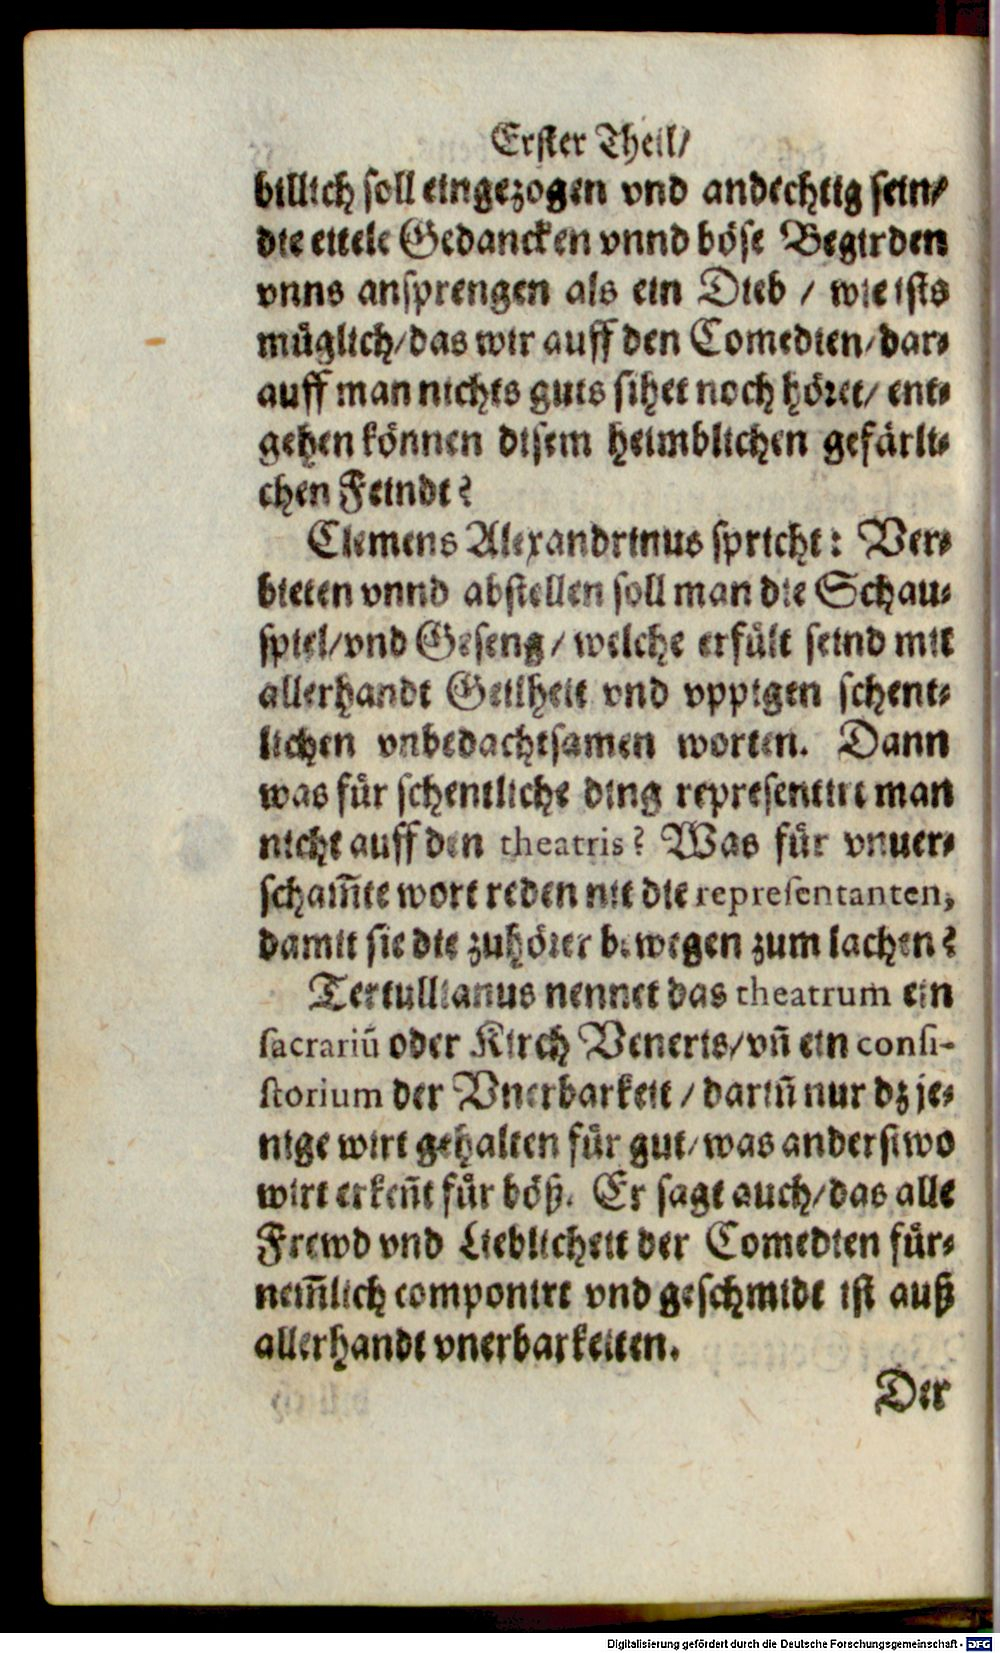 Erster Theil/
billich soll eingezogen vnd andechtig sein/
die eitele Gedancken vnnd böse Begirden
vnns ansprengen als ein Dieb / wie ists
müglich/das wir auff den Comedien/dar-
auff man nichts guts sihet noch höret/ ent-
gehen können disem heimblichen gefärli-
chen Feindt?
Clemens Alexandrinus spricht: Ver-
bieten vnnd abstellen soll man die Schau-
spiel/vnd Geseng / welche erfült seind mit
allerhandt Geilheit vnd vppigen schent-
lichen vnbedachtsamen worten. Dann
was für schentliche ding representirt man
nicht auff den theatris? Was für vnuer-
scham̃te wort reden nit die representanten,
damit sie die zuhörer bewegen zum lachen?
Tertullianus nennet das theatrum ein
sacrariũ oder Kirch Veneris/vñ ein consi-
storium der Vnerbarkeit / dariñ nur dz je-
nige wirt gehalten für gut/was anderstwo
wirt erkeñt für böß. Er sagt auch/das alle
Frewd vnd Lieblicheit der Comedien für-
nem̃lich componirt vnd geschmidt ist auß
allerhandt vnerbarkeiten.
Der
Digitalisierung gefördert durch die Deutsche Forschungsgemeinschaft - DFG